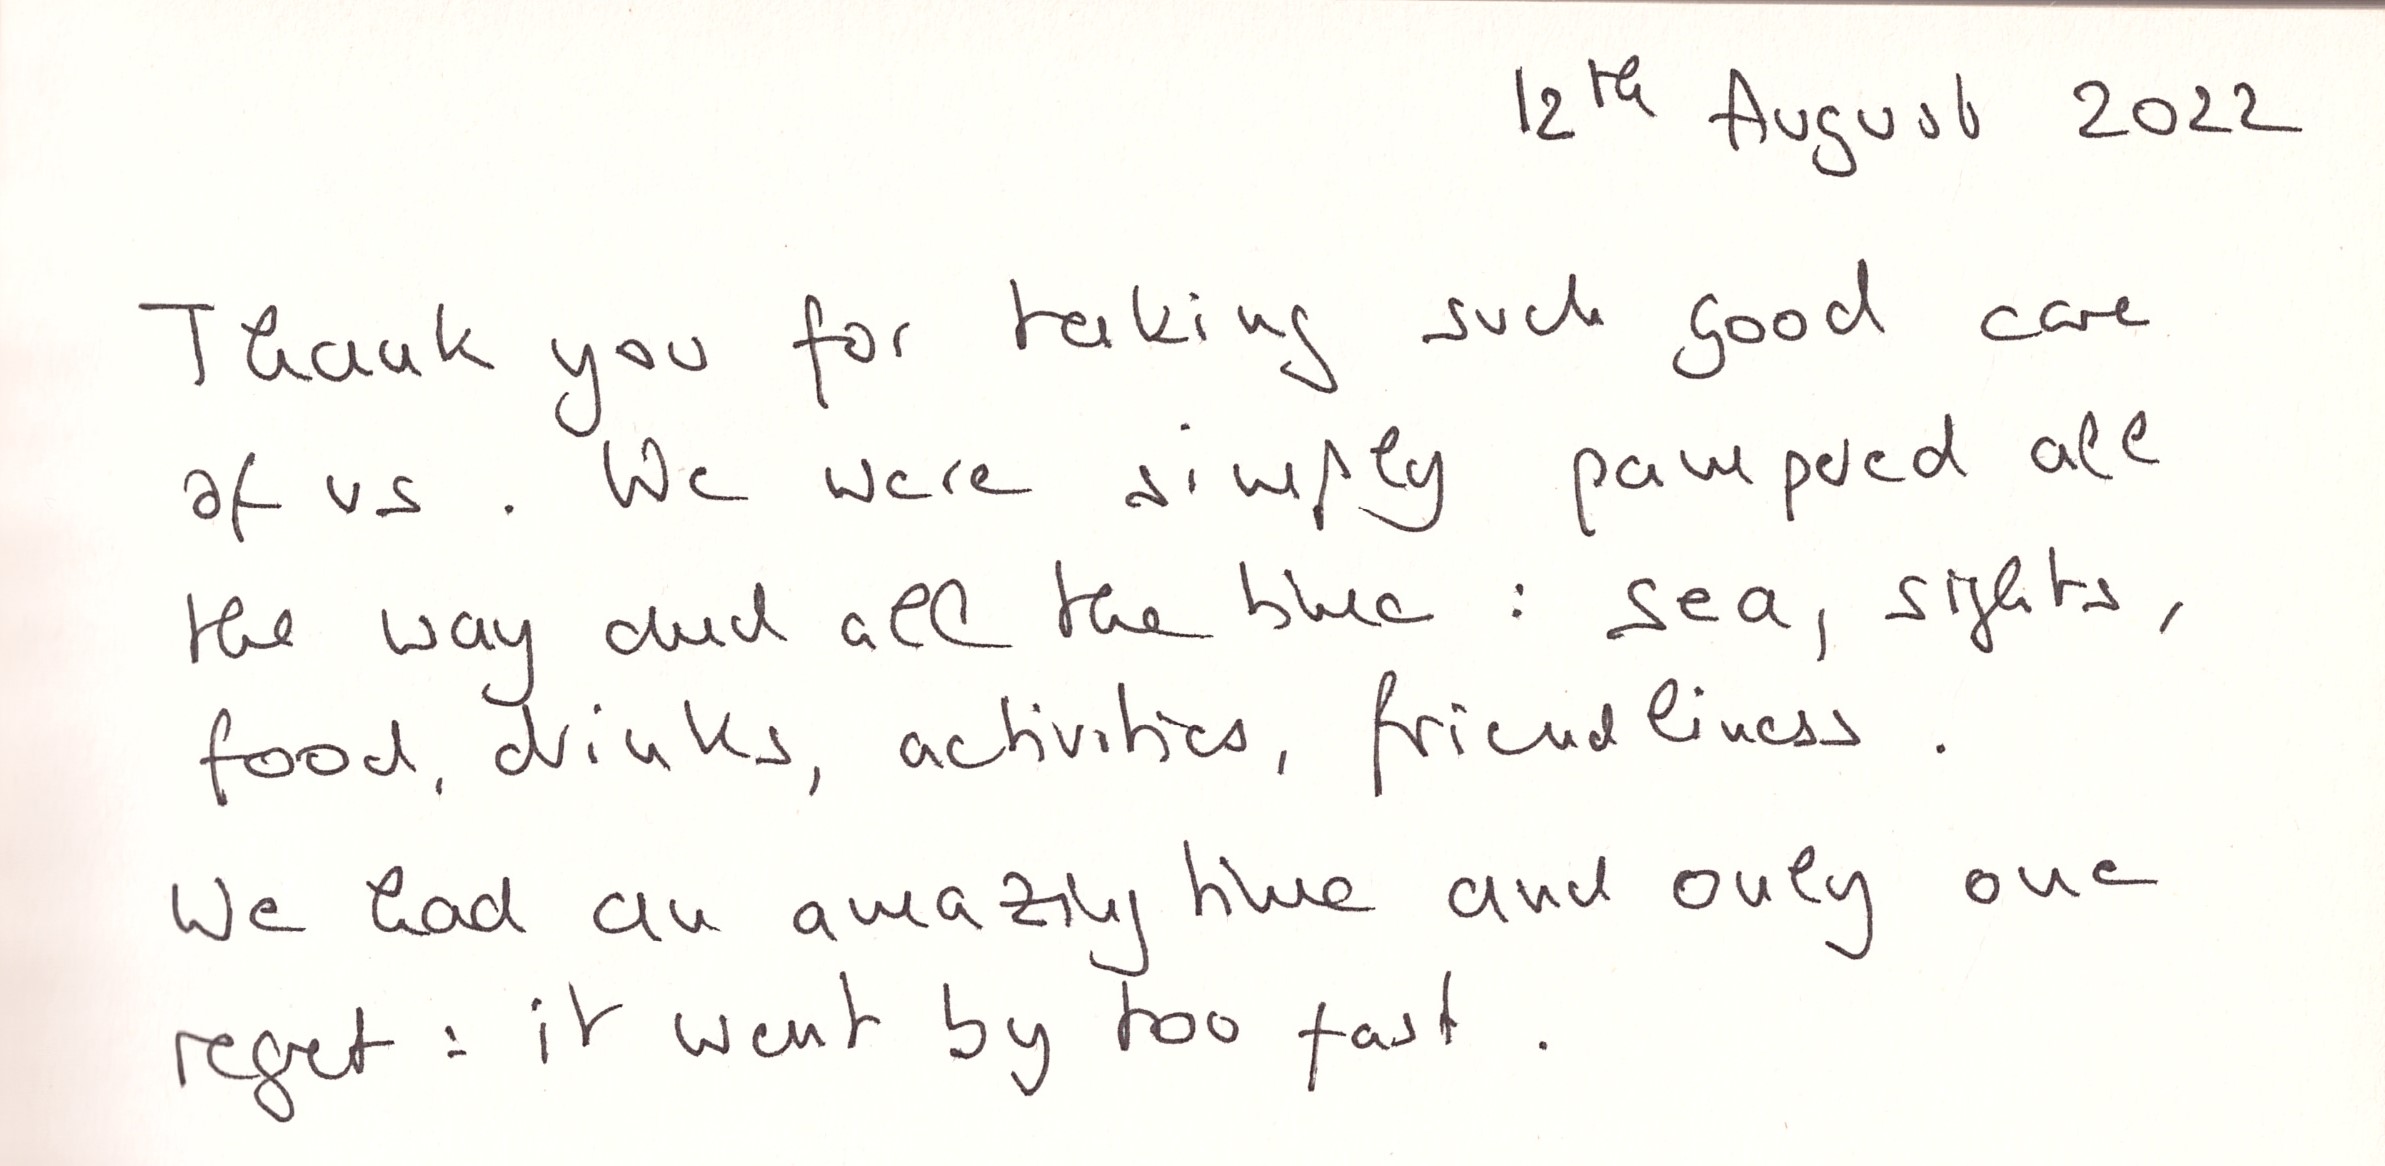 12th August 2022
Thank you for taking such good care
of us. We were simply pampered all
the way and all the time : sea, sights,
food, drinks, activities, friendliness.
We had an amazing time and only one
regret : it went by too fast.